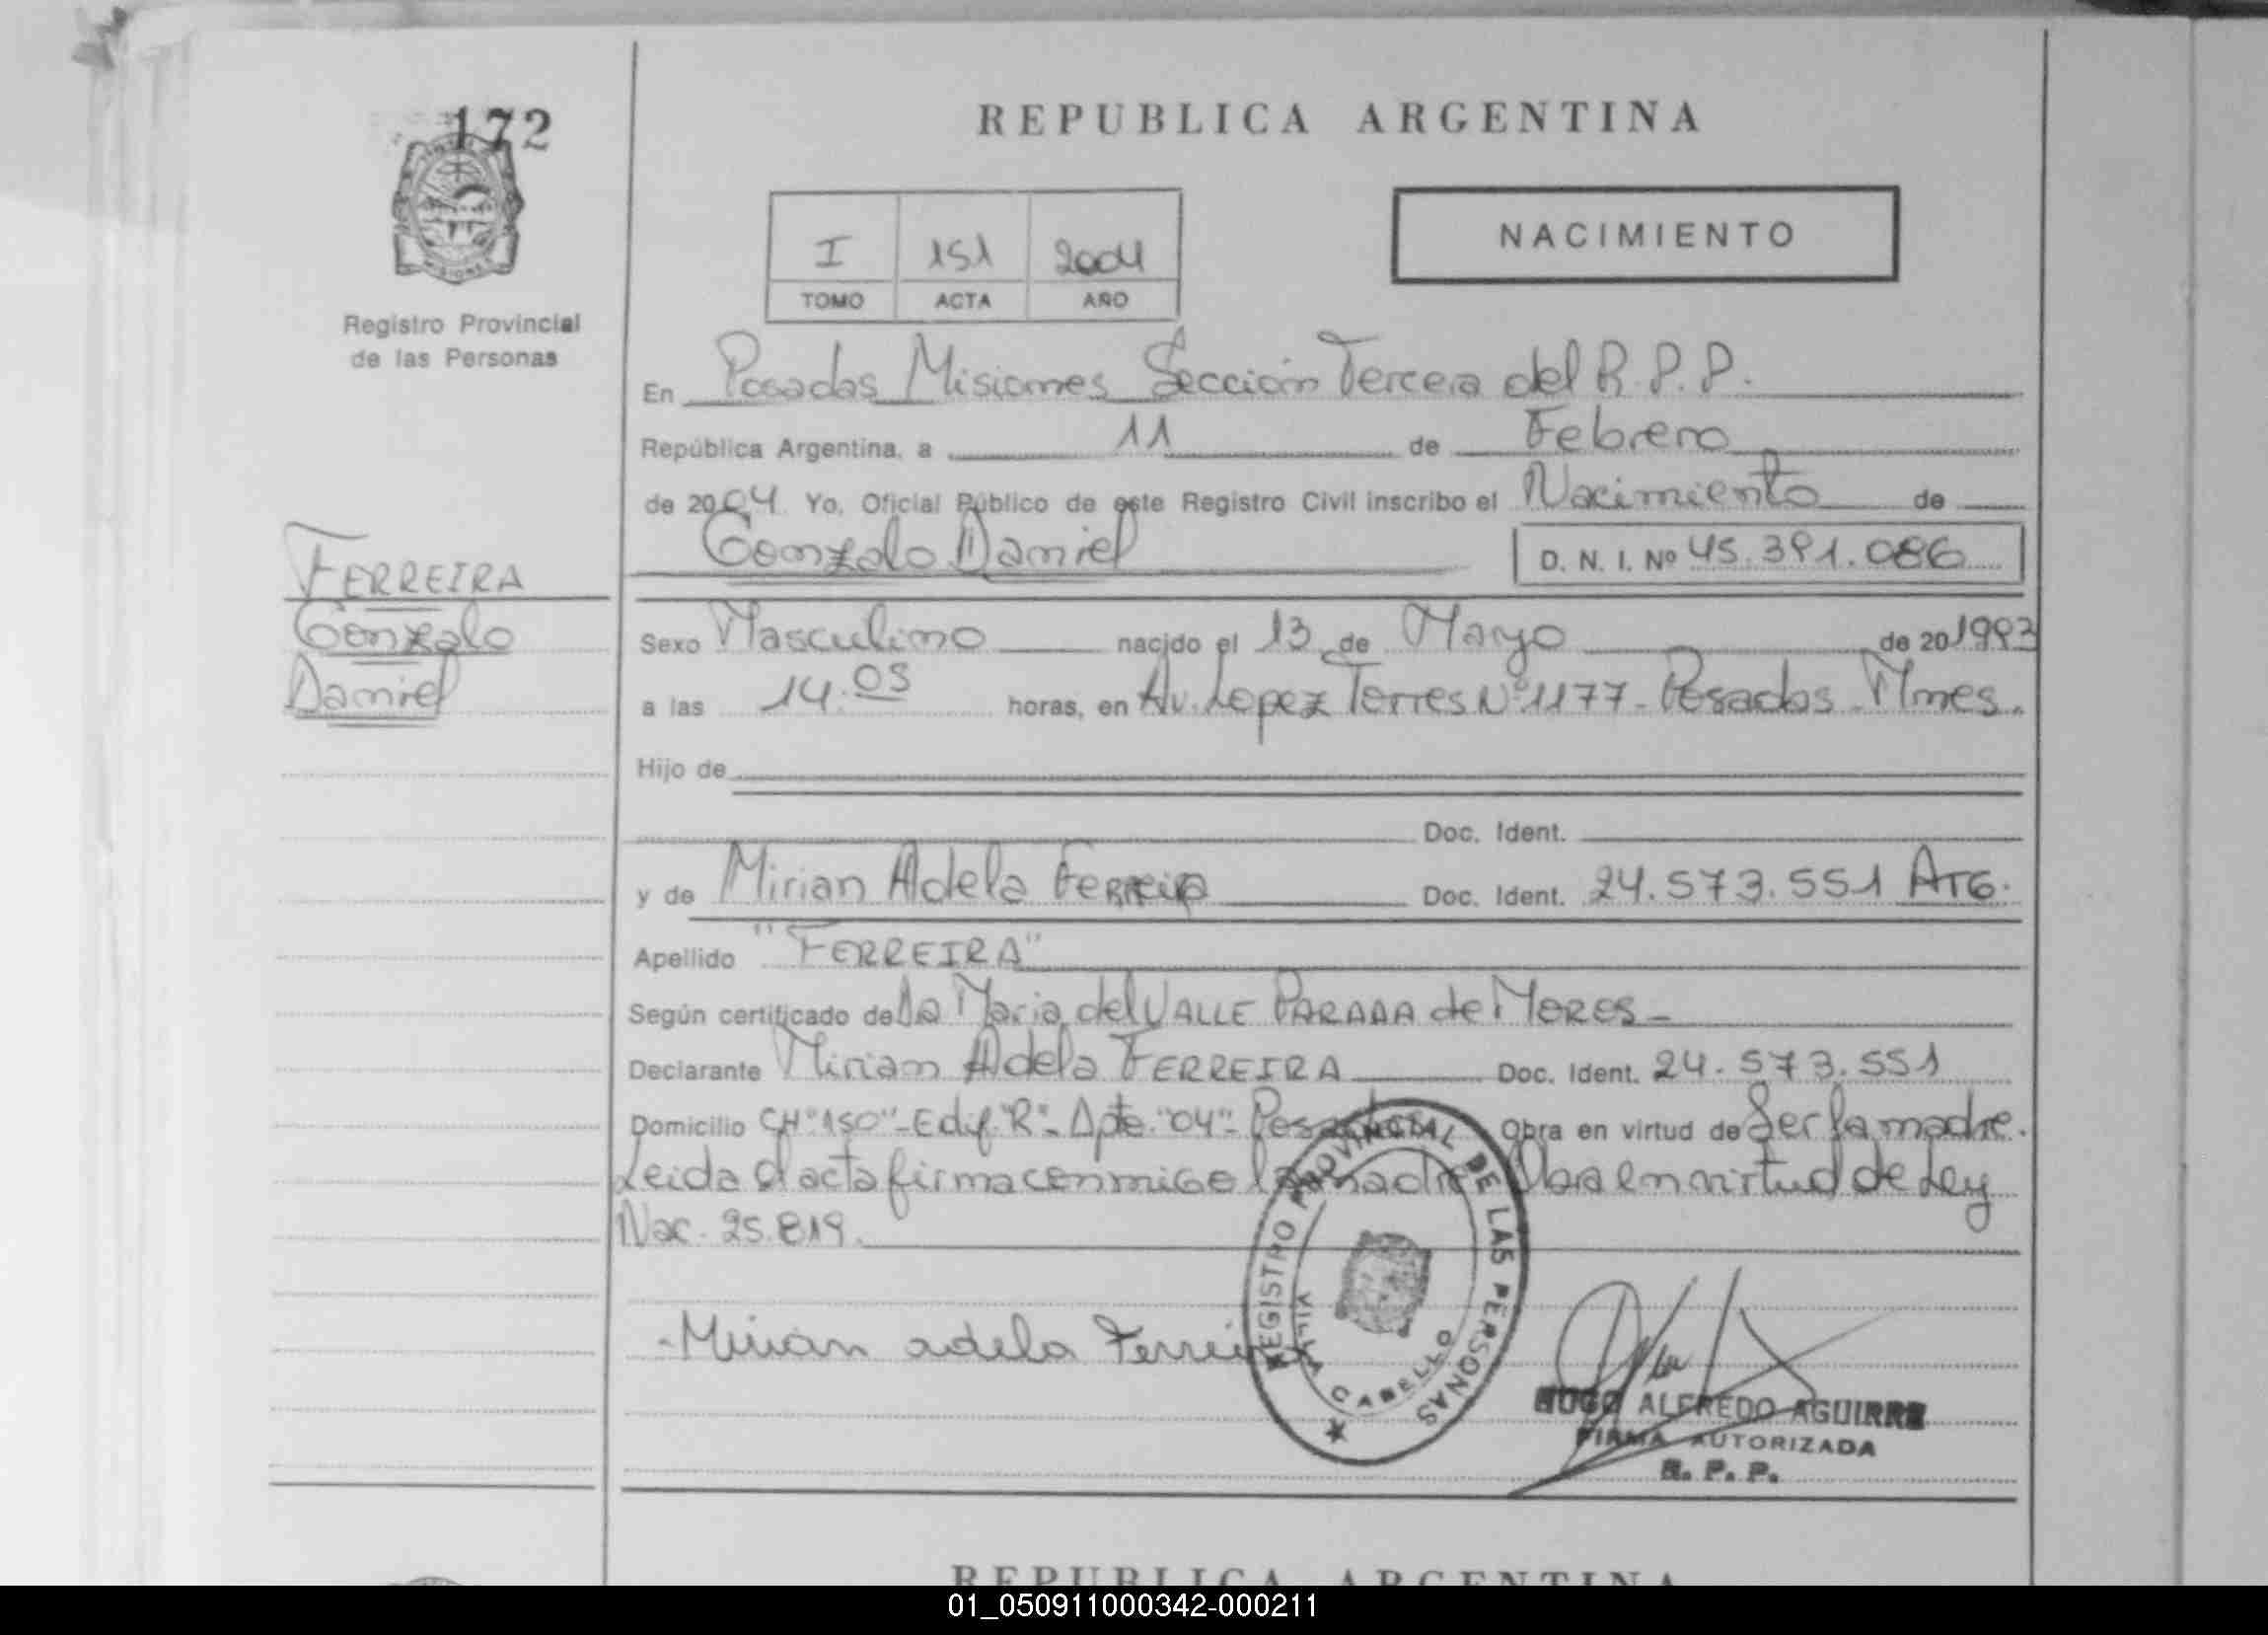 172
REPUBLICA ARGENTINA
NACIMIENTO
I 151 2004
TOMO ACTA AÑO
MISIONES
Registro Provincial
de las Personas
En Posadas Misiones Sección Tercera del R.P.P.
República Argentina, a 11 de Febrero
de 2004 Yo, Oficial Público de este Registro Civil inscribo el Nacimiento de
Gonzalo Daniel D. N. I. Nº 45.391.086
FERREIRA
Gonzalo
Daniel
Sexo Masculino nacido el 13 de Mayo de 201993
a las 14.05 horas, en Av. Lopez Torres Nº 1177 - Posadas - Mnes.
Hijo de
Doc. Ident.
y de Mirian Adela Ferreira Doc. Ident. 24.573.551 ArG.
Apellido "FERREIRA"
Según certificado de Da Maria del VALLE PARADA de MORES -
Declarante Mirian Adela FERREIRA Doc. Ident. 24.573.551
Domicilio CH "150" - Edif. "R" - Dpto. "04" - Obra en virtud de Ser la madre.
Leida el acta firma conmigo la madre Obra en virtud de Ley
Nac. 25.819.
- Mirian adela Ferreira
REGISTRO PROVINCIAL DE LAS PERSONAS
VILLA CABELLO
HUGO ALFREDO AGUIRRE
FIRMA AUTORIZADA
R. P. P.
REPUBLICA ARGENTINA
01_050911000342-000211